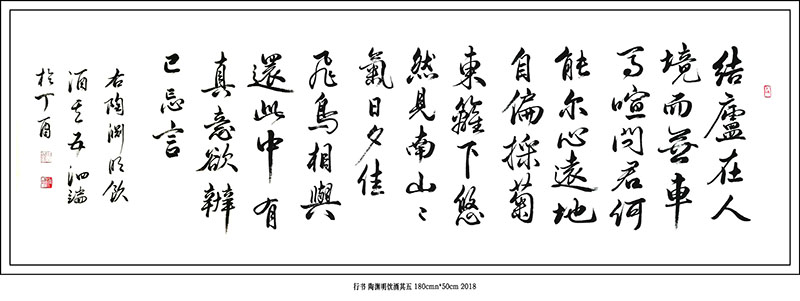 結廬在人
境而無車
馬喧問君何
能尔心遠地
自偏採菊
東籬下悠
然見南山〻
氣日夕佳
飛鳥相與
還此中有
真意欲辨
已忘言
右陶渊明飲
酒其五 泗端
於丁酉
行书 陶渊明饮酒其五 180cmn*50cm 2018